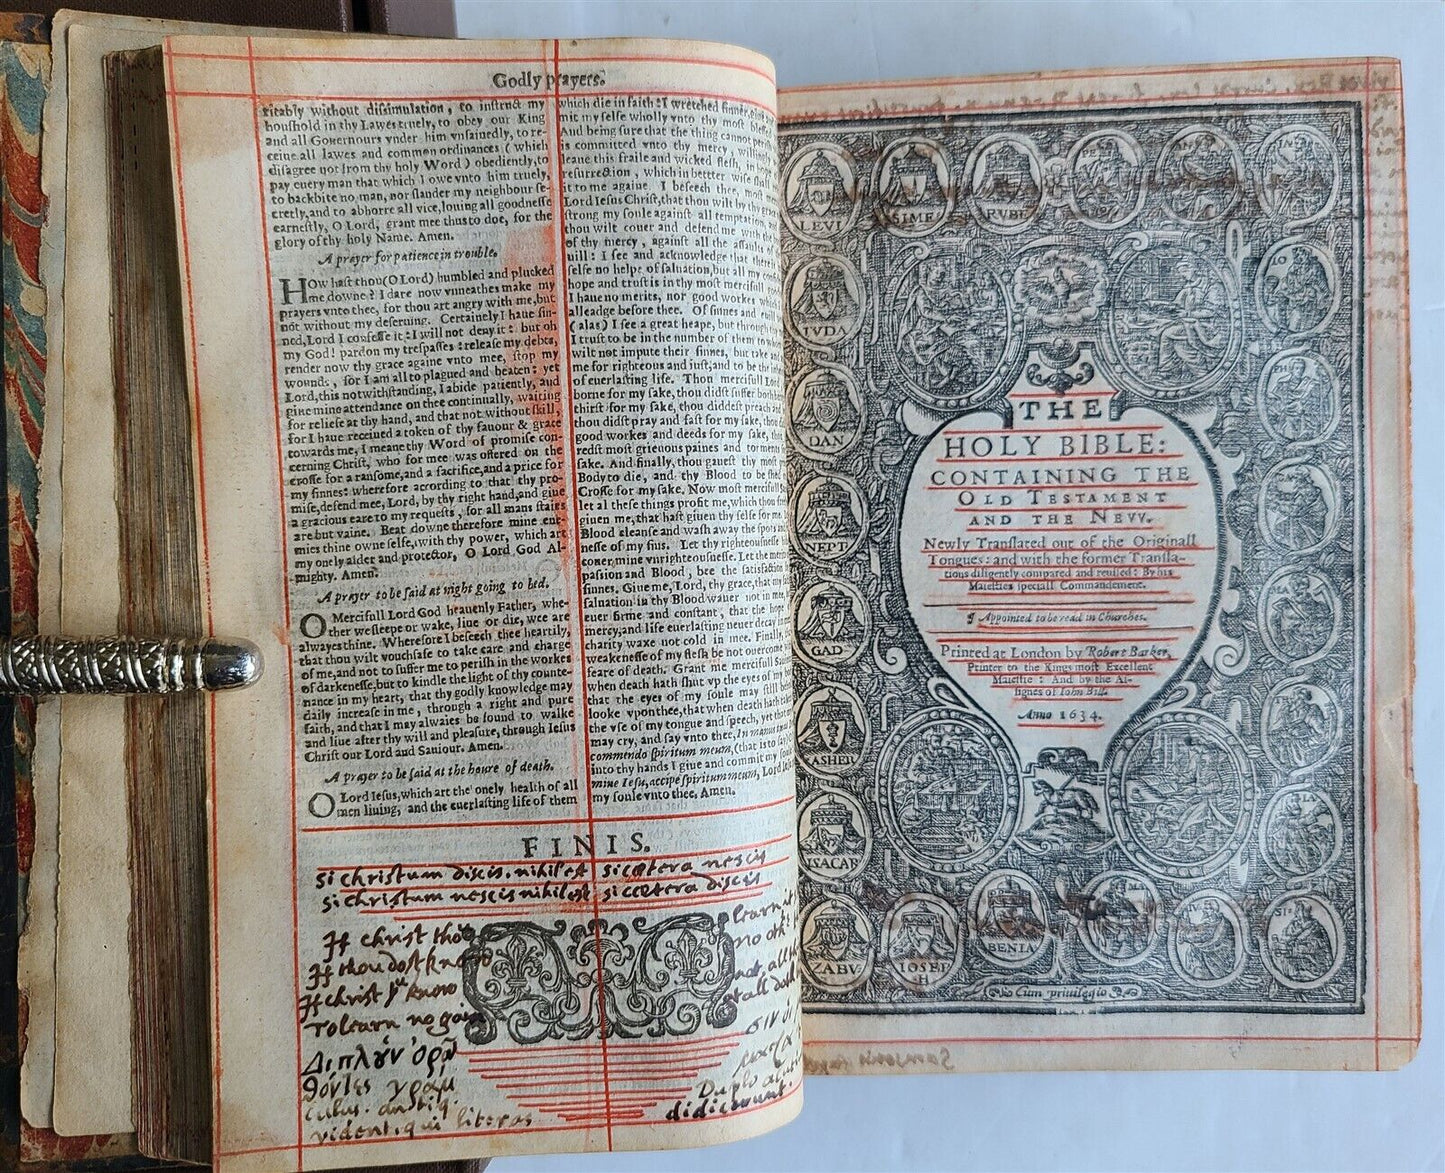 Godly prayers.
ritably without dissimulation, to instruct my
houshold in thy Lawes truely, to obey our King
and all Gouernours vnder him vnfainedly, to re-
ceiue all lawes and common ordinances (which
disagree not from thy holy Word) obediently, to
pay euery man that which I owe vnto him truely,
to backbite no man, nor slander my neighbour se-
cretly, and to abhorre all vice, louing all goodnesse
earnestly, O Lord, grant mee thus to doe, for the
glory of thy holy Name. Amen.
A prayer for patience in trouble.
HOw hast thou (O Lord) humbled and plucked
me downe? I dare now vnneathes make my
prayers vnto thee, for thou art angry with me, but
not without my deseruing. Certainely I haue sin-
ned, Lord I confesse it: I will not deny it: but oh
my God! pardon my trespasses: release my debts,
render now thy grace againe vnto mee, stop my
wounds, for I am all to plagued and beaten: yet
Lord, this notwithstanding, I abide patiently, and
giue mine attendance on thee continually, waiting
for reliefe at thy hand, and that not without skill,
for I haue receiued a token of thy fauour & grace
towards me, I meane thy Word of promise con-
cerning Christ, who for mee was offered on the
crosse for a ransome, and a sacrifice, and a price for
my sinnes: wherefore according to that thy pro-
mise, defend mee, Lord, by thy right hand, and giue
a gracious eare to my requests, for all mans staies
are but vaine. Beat downe therefore mine ene-
mies thine owne selfe, with thy power, which art
my onely aider and protector, O Lord God Al-
mighty. Amen.
A prayer to be said at night going to bed.
O Mercifull Lord God heauenly Father, whe-
ther we sleepe or wake, liue or die, wee are
alwayes thine. Wherefore I beseech thee heartily,
that thou wilt vouchsafe to take care and charge
of me, and not to suffer me to perish in the workes
of darkenesse, but to kindle the light of thy counte-
nance in my heart, that thy godly knowledge may
daily increase in me, through a right and pure
faith, and that I may alwaies be found to walke
and liue after thy will and pleasure, through Iesus
Christ our Lord and Sauiour. Amen.
A prayer to be said at the houre of death.
O Lord Iesus, which are the onely health of all
men liuing, and the euerlasting life of them
which die in faith: I wretched sinner, giue
mit my selfe wholly vnto thy most blessed
And being sure that the thing cannot perish
is committed vnto thy mercy, willingly
leaue this fraile and wicked flesh, in hope
resurrection, which in better wise shall
it to me againe. I beseech thee, most
Lord Iesus Christ, that thou wilt by thy grace
strong my soule against all temptation,
thou wilt couer and defend me with
of thy mercy, against all the assaults of
uill: I see and acknowledge that there is
selfe no helpe of saluation, but all my confi
hope and trust is in thy most mercifull
I haue no merits, nor good workes which
alleadge before thee. Of sinnes and euill
(alas) I see a great heape, but through
I trust to be in the number of them to whom
wilt not impute their sinnes, but take and
me for righteous and iust, and to be the
of euerlasting life. Thou mercifull Lord
borne for my sake, thou didst suffer both
thirst for my sake, thou diddest preach and
thou didst pray and fast for my sake, thou
good workes and deeds for my sake, thou
redst most grieuous paines and torments
sake. And finally, thou gauest thy most
Body to die, and thy Blood to be shed
Crosse for my sake. Now most mercifull
let all these things profit me, which thou
giuen me, that hast giuen thy selfe for me.
Blood cleanse and wash away the spots and
nesse of my sins. Let thy righteousnesse
couer mine vnrighteousnesse. Let the merits
passion and Blood, bee the satisfaction
sinnes. Giue me, Lord, thy grace, that my
saluation in thy Blood wauer not in me,
euer firme and constant, that the hope
mercy, and life euerlasting neuer decay in
charity waxe not cold in mee. Finally,
weakenesse of my flesh be not ouercome
feare of death. Grant me mercifull Sauiour
when death hath shut vp the eyes of my
that the eyes of my soule may still behold
looke vpon thee, that when death hath
the vse of my tongue and speech, yet
may cry, and say vnto thee, In manus tuas
commendo spiritum meum, (that is to say)
into thy hands I giue and commit my
mine Iesu, accipe spiritum meum, Lord Iesu
my soule vnto thee. Amen.
FINIS.
si christum discis, nihil est si cætera nescis
si christum nescis nihil est si cætera discis
If christ tho
If thou dost kno
If christ yu know
To learn no gain
learn it
no oth
not, all th
Διπλοῦν ὁρῶ
culus. antiq.
vident, qui literas
Duplo
didicerunt.
LEVI
SIME
RVBE
PE
AN
IVDA
IO
DAN
PH
NEPT
GAD
MA
ASHER
ISACAR
ZABV
IOSEP
H
BENIA
MA
IVS
SI
THE
HOLY BIBLE:
CONTAINING THE
OLD TESTAMENT
AND THE NEVV.
Newly Translated out of the Originall
Tongues: and with the former Transla-
tions diligently compared and reuised: By his
Maiesties speciall Commandement.
¶ Appointed to be read in Churches.
Printed at London by Robert Barker,
Printer to the Kings most Excellent
Maiestie: And by the As-
signes of Iohn Bill.
Anno 1634.
Cum priuilegio